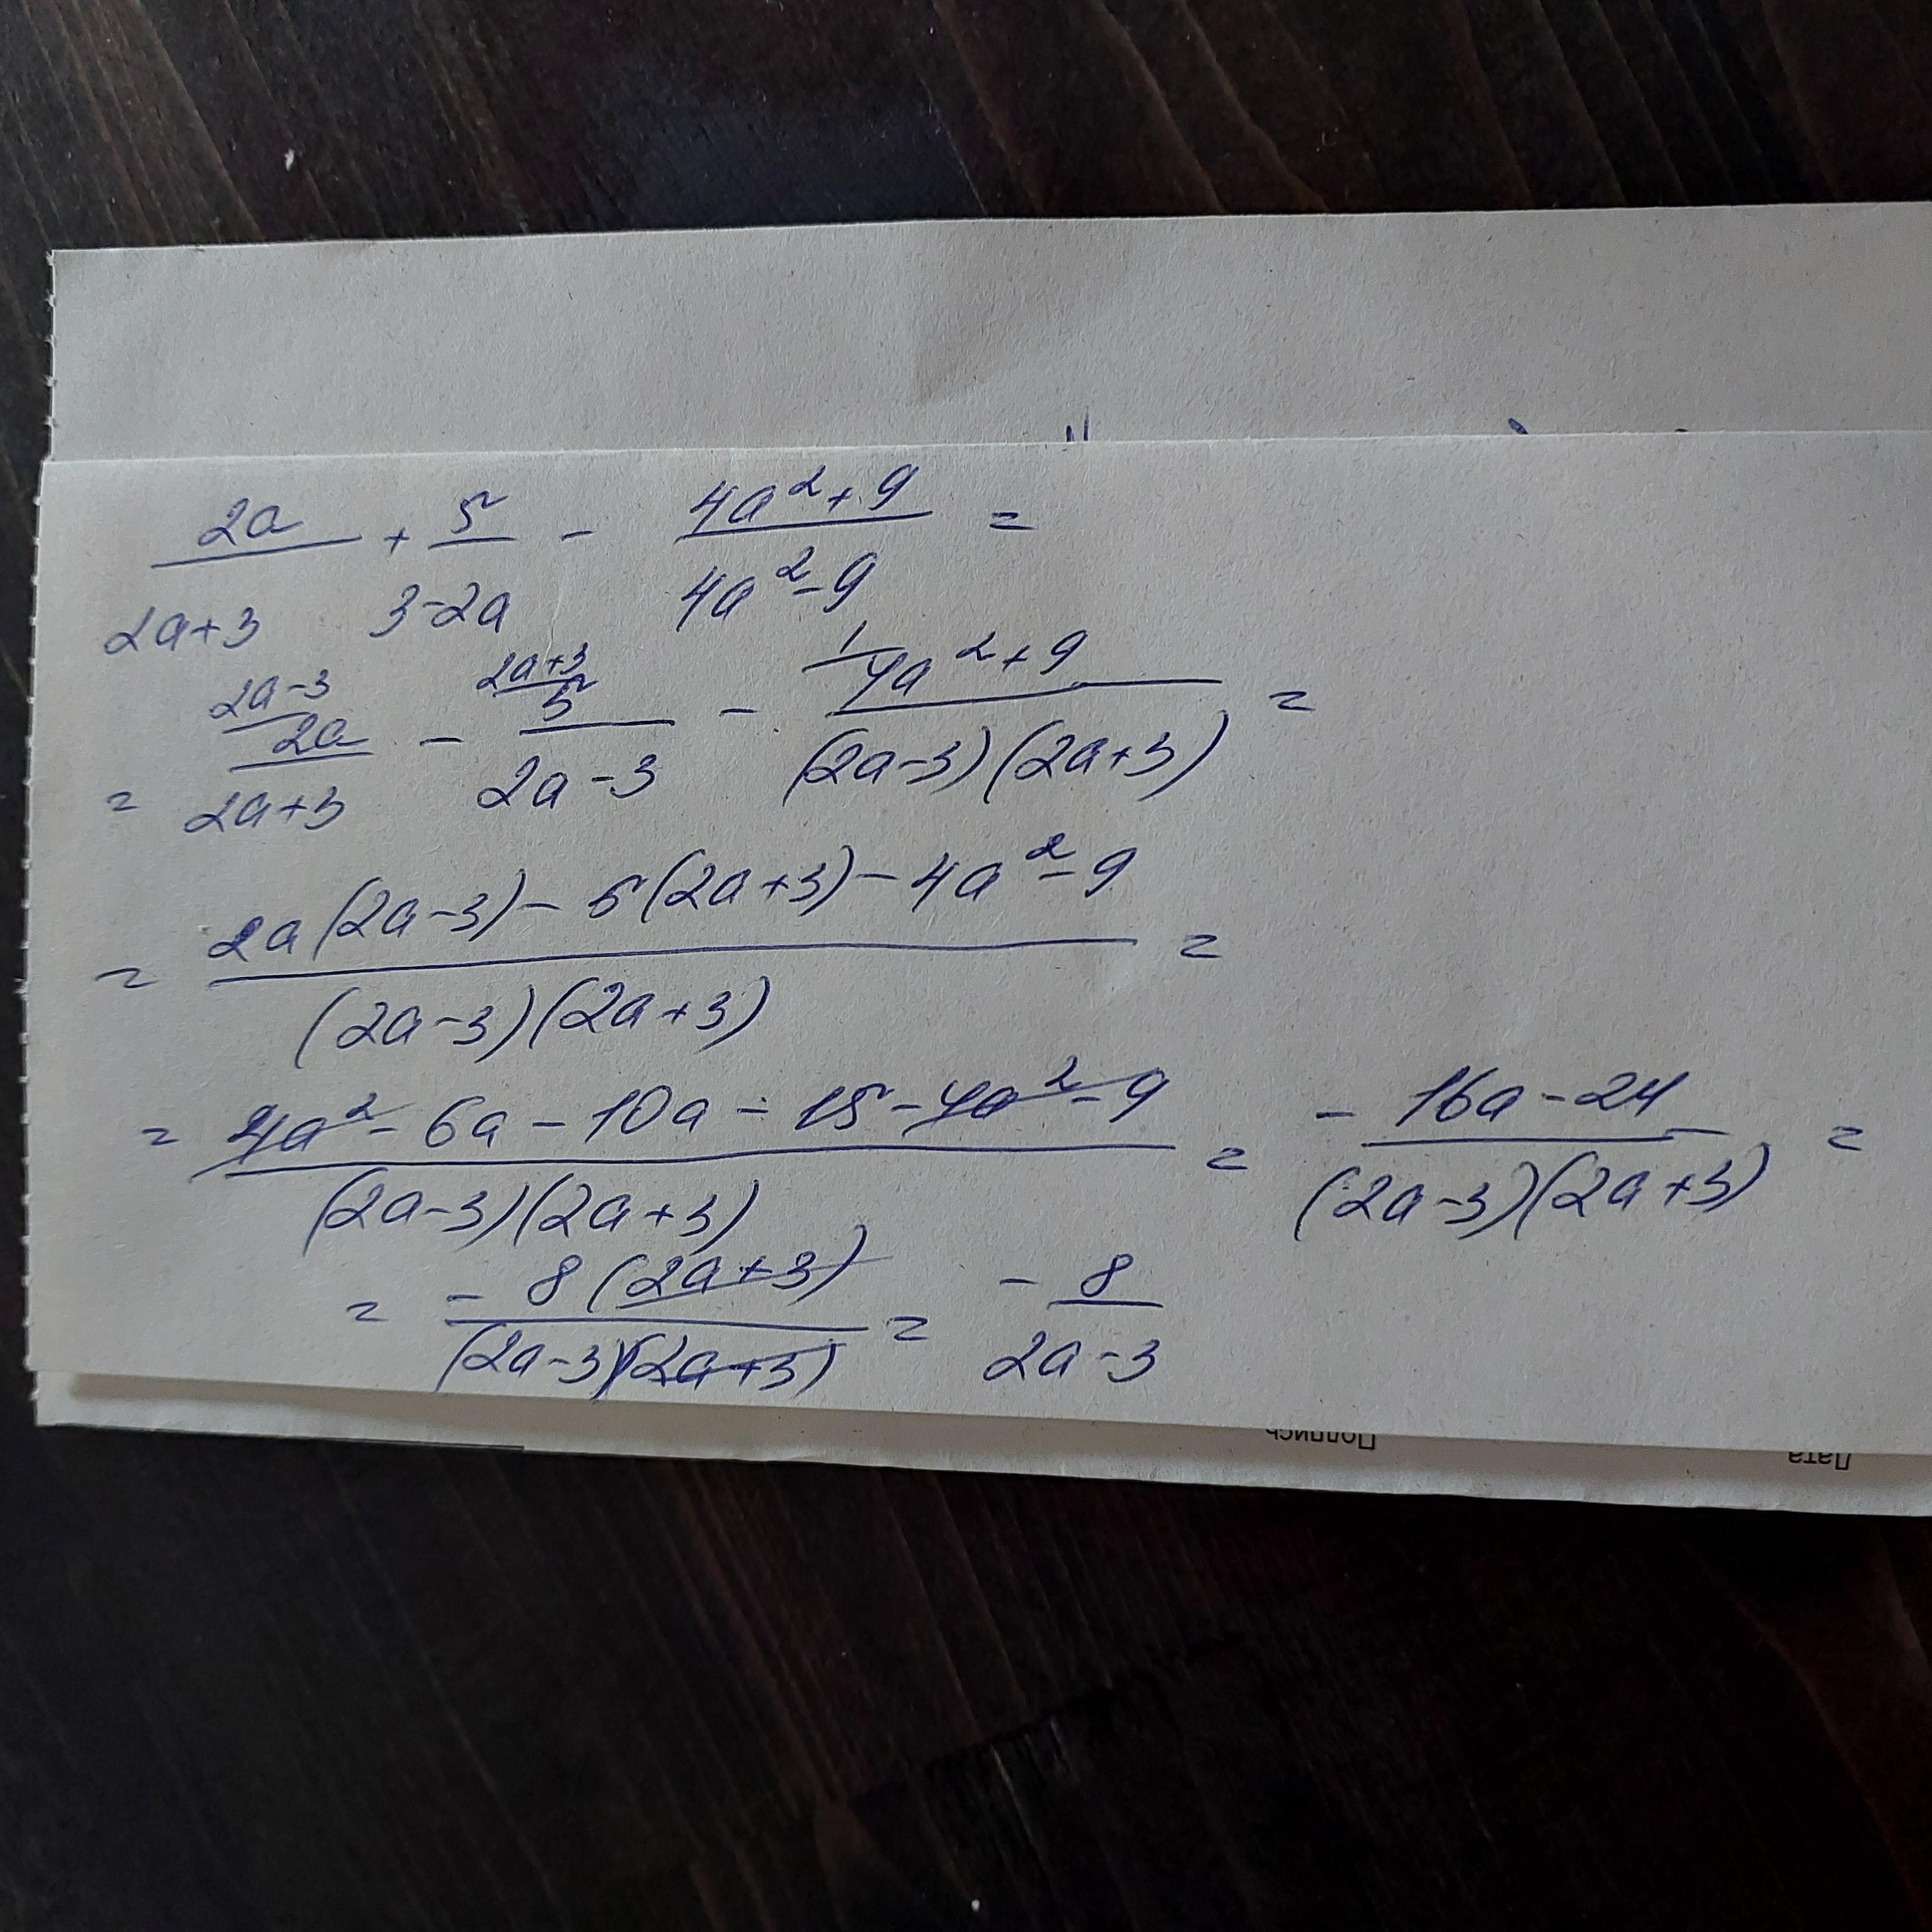 2a/(2a+3) + 5/(3-2a) - (4a²+9)/(4a²-9) =
= 2a/(2a+3) (2a-3) - 5/(2a-3) (2a+3) - (4a²+9)/((2a-3)(2a+3)) (1) =
= (2a(2a-3) - 5(2a+3) - 4a² - 9)/((2a-3)(2a+3)) =
= (4a² - 6a - 10a - 15 - 4a² - 9)/((2a-3)(2a+3)) = (-16a-24)/((2a-3)(2a+3)) =
= -8(2a+3)/((2a-3)(2a+3)) = -8/(2a-3)
Подпись
Дата